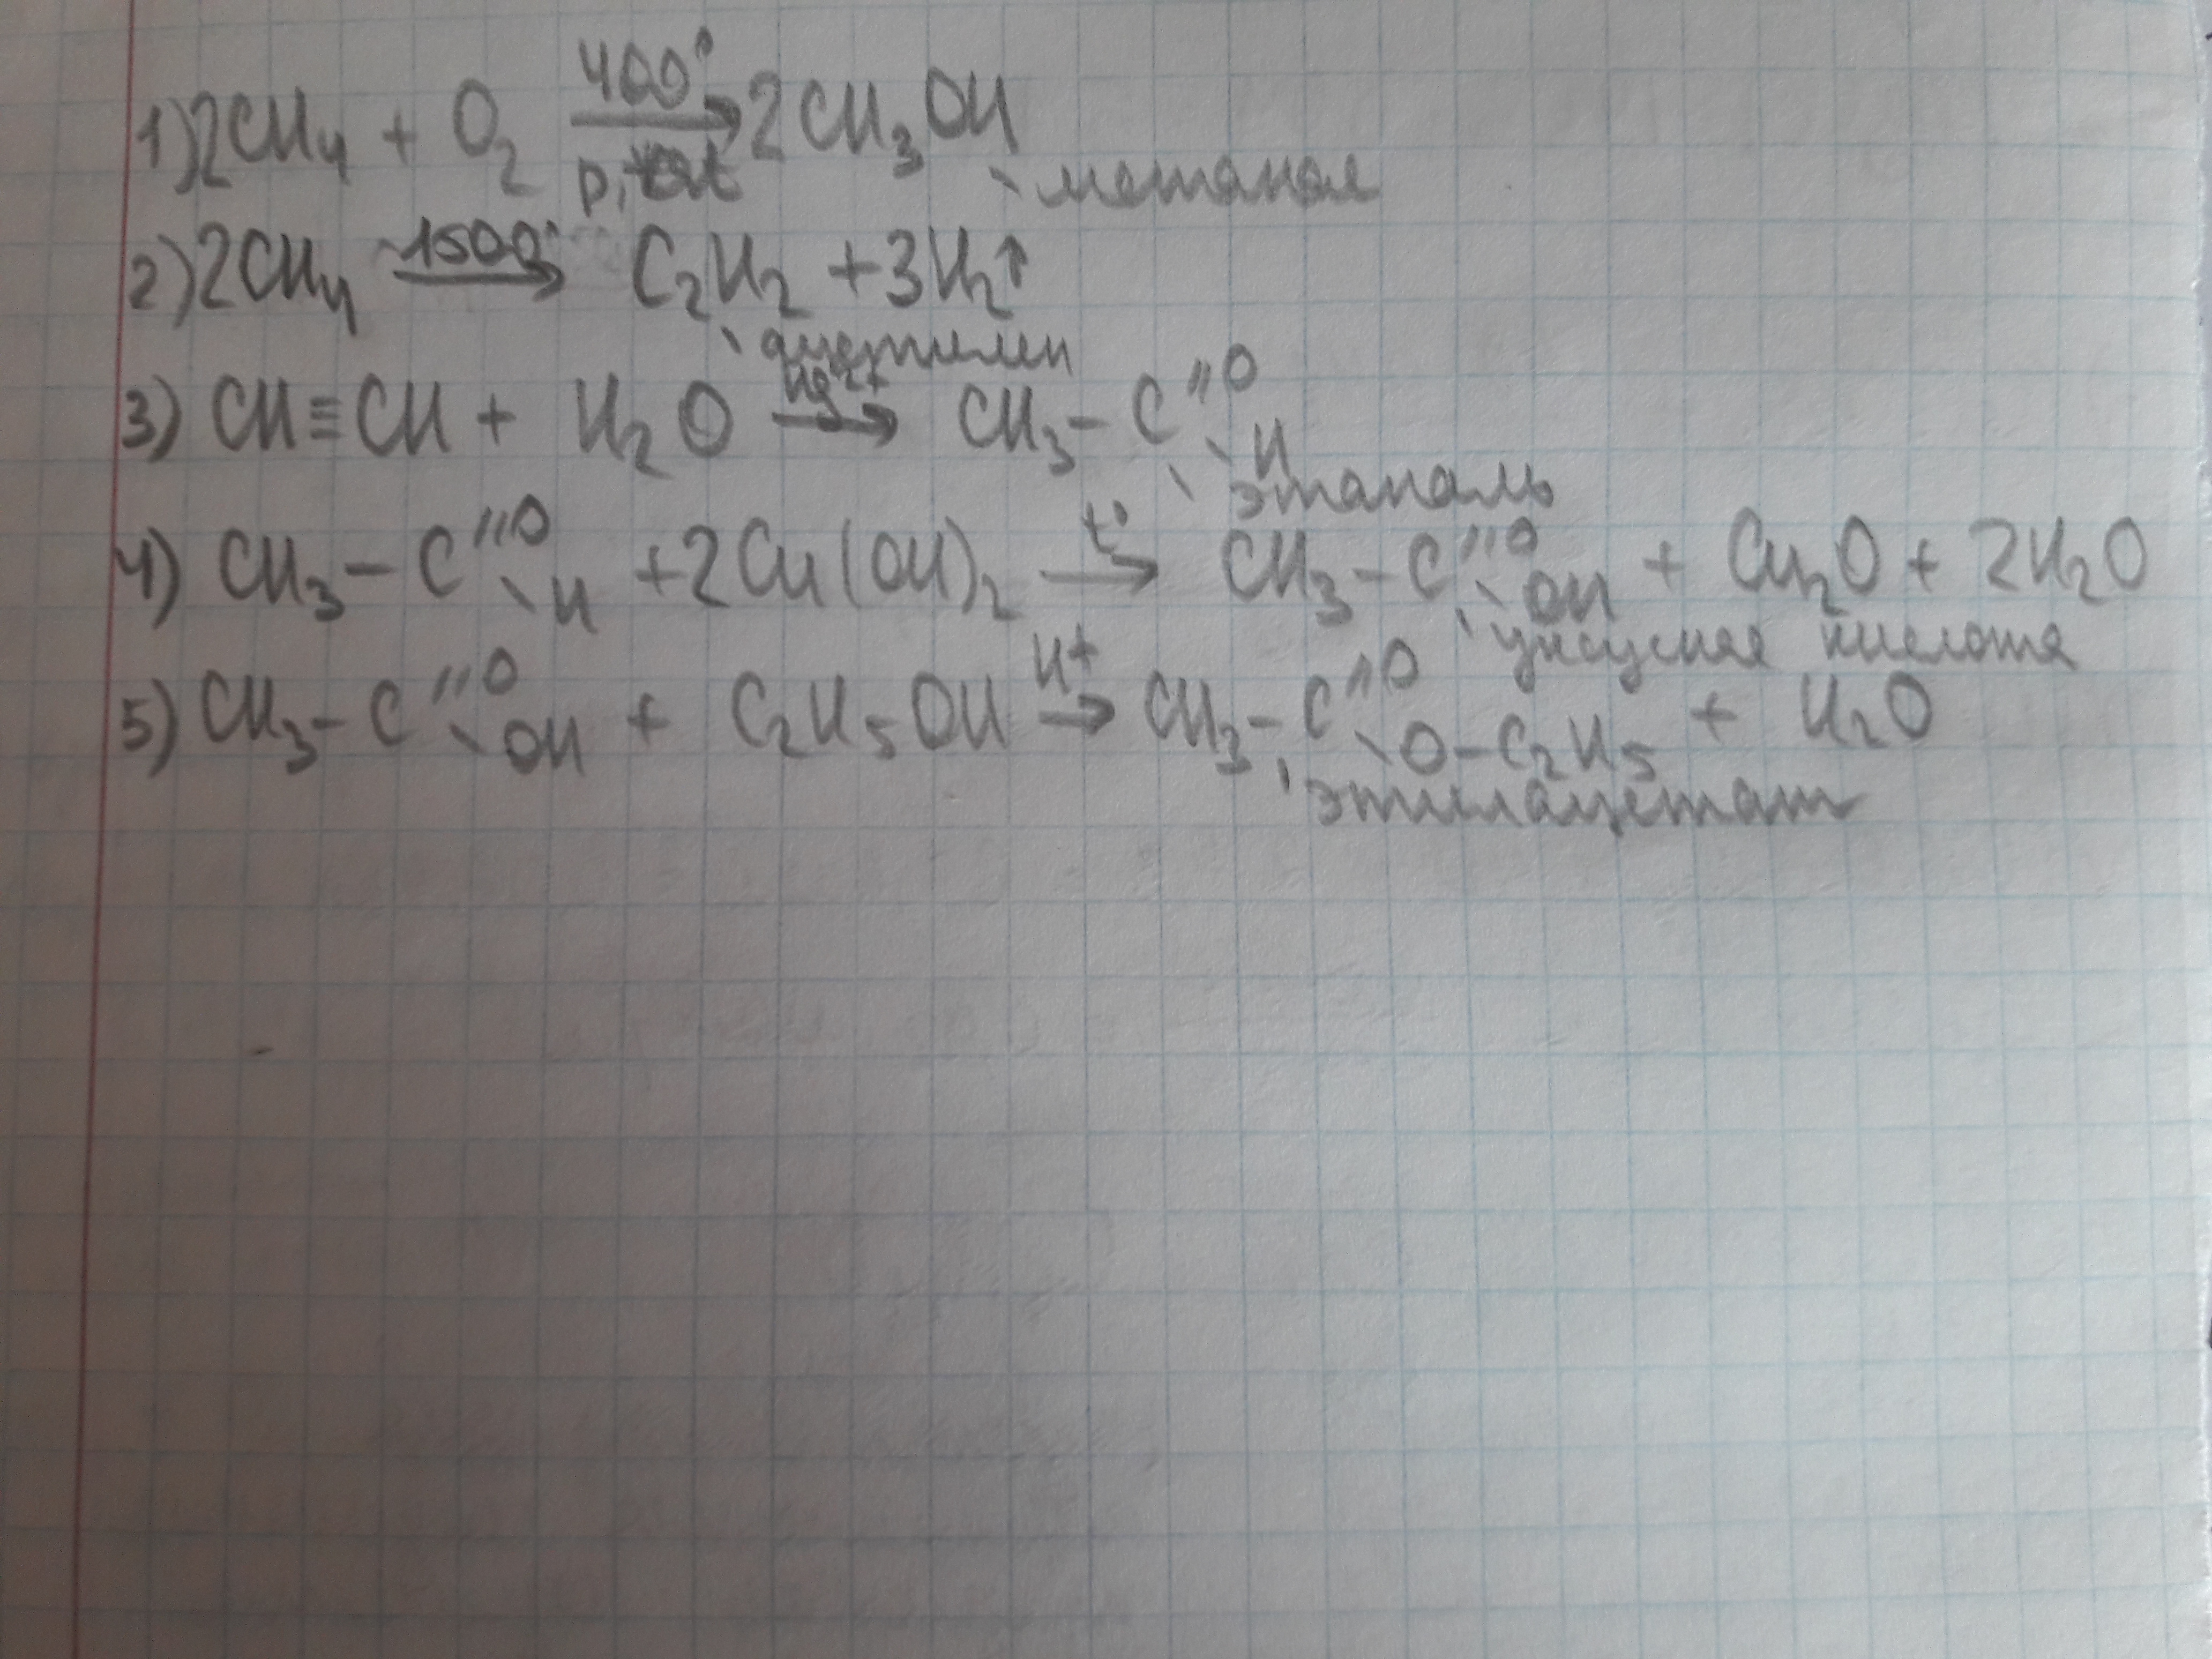 1) 2CH₄ + O₂ 400° p, kat → 2CH₃OH
метанол
2) 2CH₄ 1500° → C₂H₂ + 3H₂↑
ацетилен
3) CH≡CH + H₂O Hg²⁺ → CH₃-C //O \H
этаналь
4) CH₃-C //O \H + 2Cu(OH)₂ t° → CH₃-C //O \OH + Cu₂O + 2H₂O
уксусная кислота
5) CH₃-C //O \OH + C₂H₅OH H+ → CH₃-C //O \O-C₂H₅ + H₂O
этилацетат